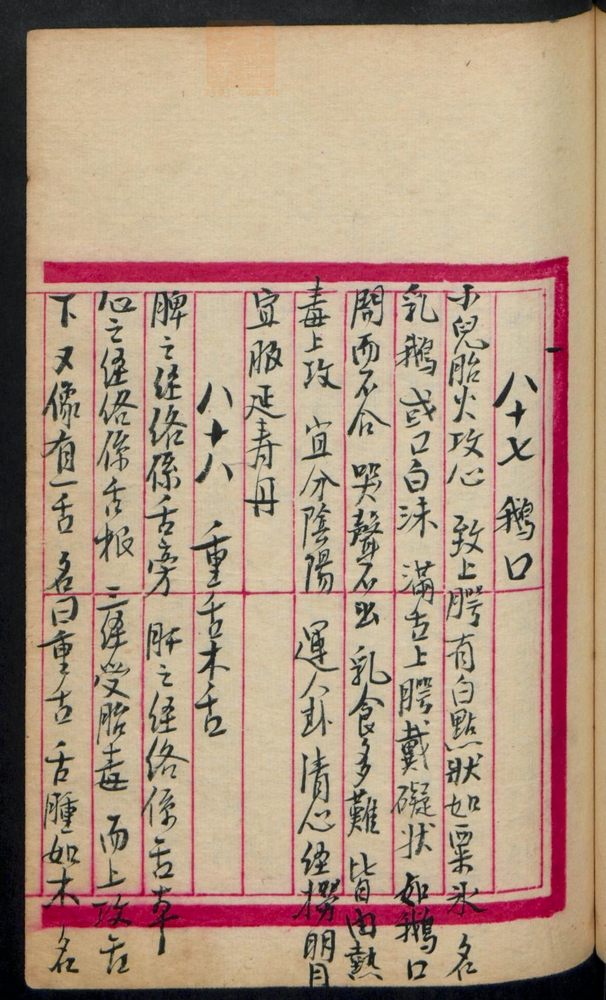 八十七 鵝口
小兒胎火攻心 致上腭有白點狀如粟米 名
乳鵝 或口白沫 滿舌上腭戴礙狀 如鵝口
開而不合 哭聲不出 乳食多難 皆由熱
毒上攻 宜分陰陽 運八卦 清心经 撈明月
宜服延壽丹
八十八 重舌木舌
脾之经络係舌旁 肝之经络係舌本
心之经络係舌根 三经受胎毒 而上攻舌
下又像有一舌 名曰重舌 舌腫如木 名